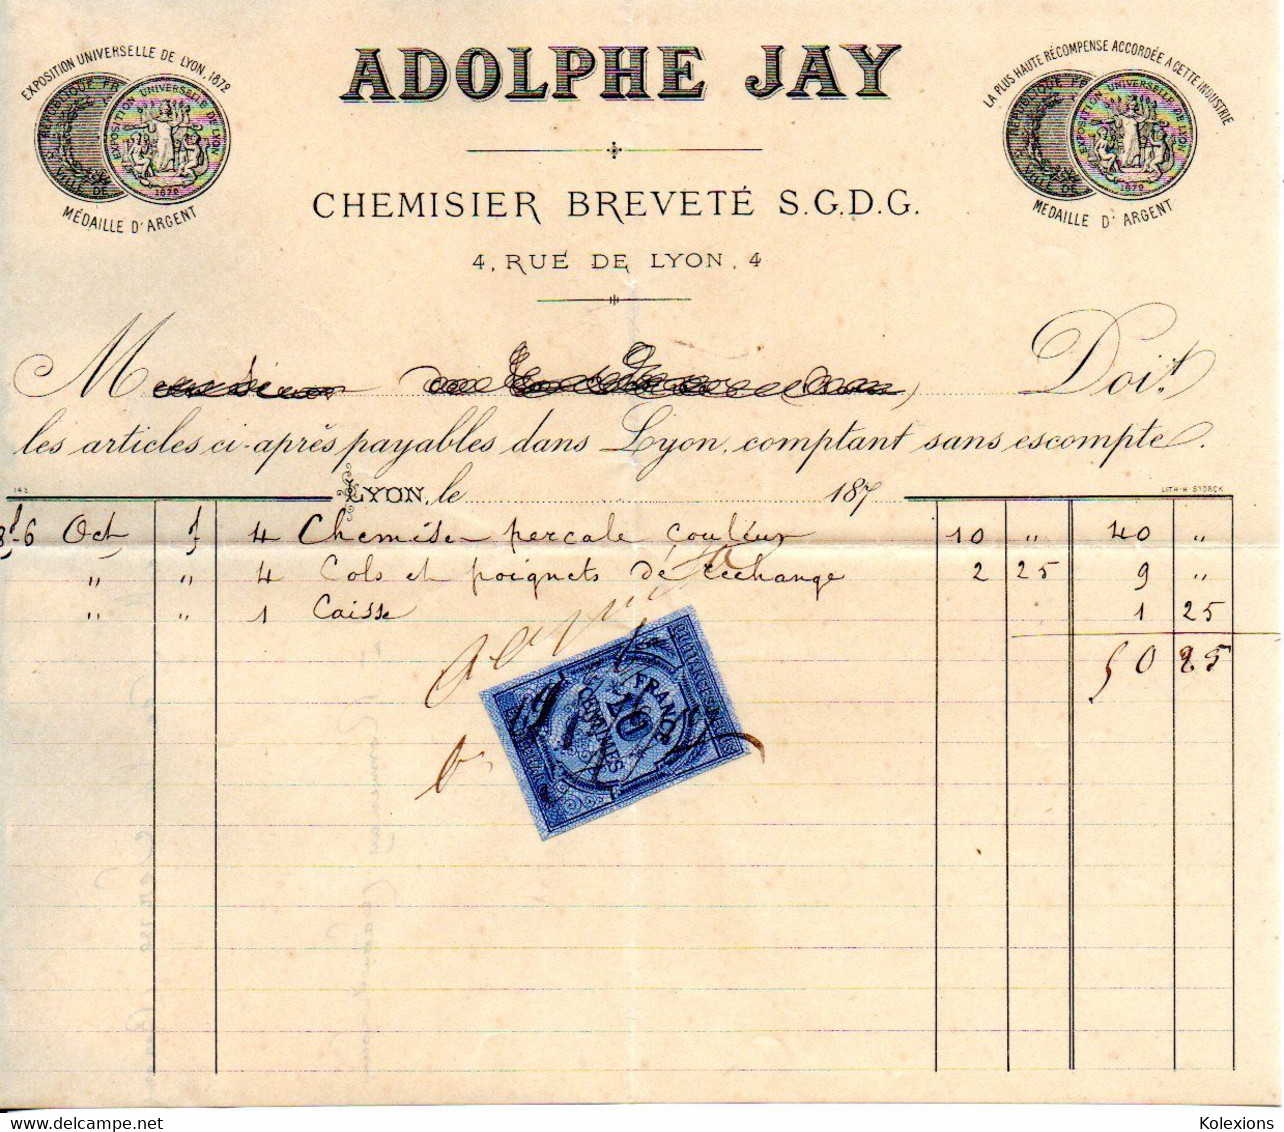 ADOLPHE JAY
EXPOSITION UNIVERSELLE DE LYON, 1872
MÉDAILLE D'ARGENT
LA PLUS HAUTE RÉCOMPENSE ACCORDÉE A CETTE INDUSTRIE
MEDAILLE D'ARGENT
EXPOSITION UNIVERSELLE DE LYON
1872
EXPOSITION UNIVERSELLE DE LYON
1872
CHEMISIER BREVETÉ S.G.D.G.
4, RUE DE LYON, 4
M Doit
les articles ci-après payables dans Lyon, comptant sans escompte.
LYON, le 187
LITH. H. STORCK
Oct 4 Chemise percale couleur 10 " 40 "
" " 4 Cols et poignets de rechange 2 25 9 "
" " 1 Caisse 1 25
50 25
QUITTANCES
FRANCE
10
CENTIMES
Kolexions
delcampe.net